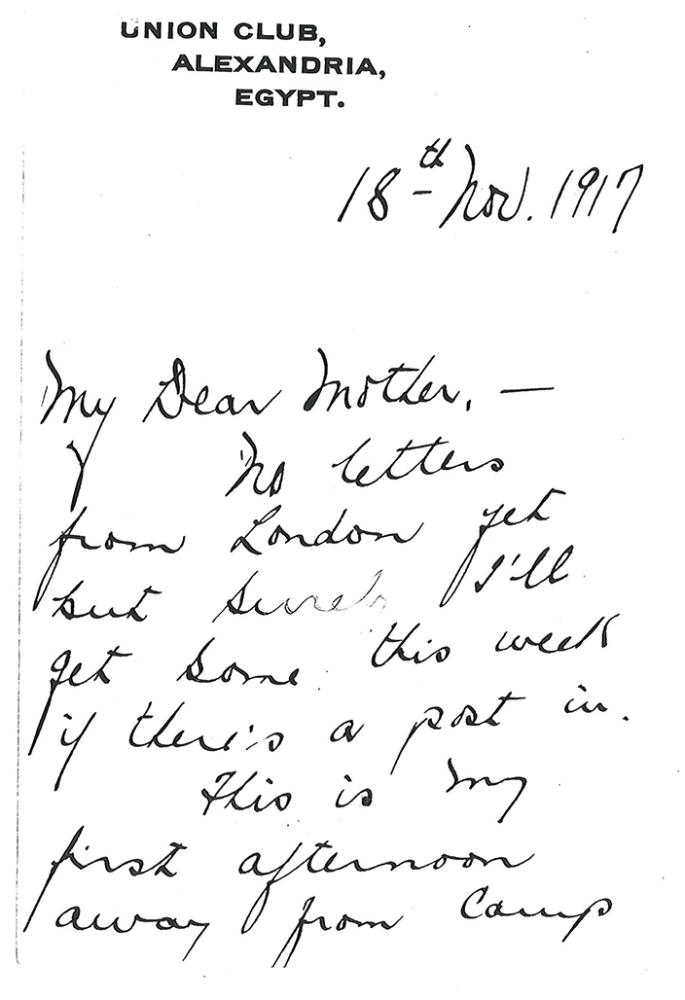 UNION CLUB,
ALEXANDRIA,
EGYPT.
18th Nov. 1917
My Dear Mother, —
No letters
from London yet
but surely I'll
get some this week
if there's a post in.
This is my
first afternoon
away from Camp